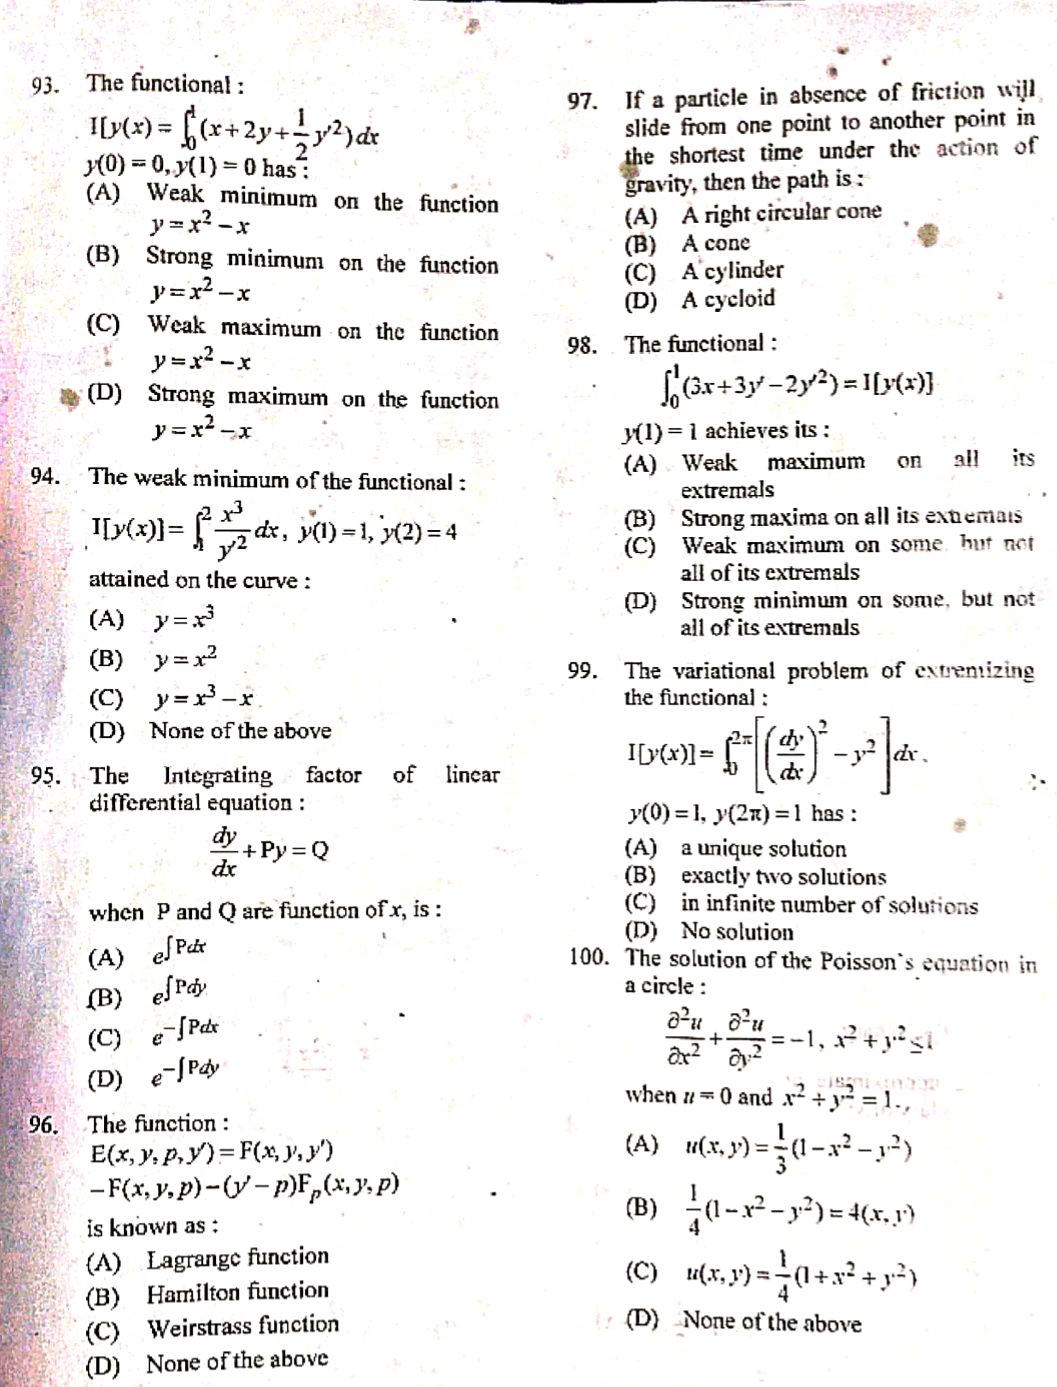 93. The functional :
I[y(x) = ∫₀¹(x+2y+½y'²)dx
y(0) = 0, y(1) = 0 has :
(A) Weak minimum on the function
y = x² – x
(B) Strong minimum on the function
y = x² – x
(C) Weak maximum on the function
y = x² – x
(D) Strong maximum on the function
y = x² – x
94. The weak minimum of the functional :
I[y(x)] = ∫₁² x³/y'² dx, y(1) = 1, y(2) = 4
attained on the curve :
(A) y = x³
(B) y = x²
(C) y = x³ – x
(D) None of the above
95. The Integrating factor of linear
differential equation :
dy/dx + Py = Q
when P and Q are function of x, is :
(A) e^∫Pdx
(B) e^∫Pdy
(C) e^–∫Pdx
(D) e^–∫Pdy
96. The function :
E(x, y, p, y') = F(x, y, y')
– F(x, y, p) – (y' – p)Fₚ(x, y, p)
is known as :
(A) Lagrange function
(B) Hamilton function
(C) Weirstrass function
(D) None of the above
97. If a particle in absence of friction will
slide from one point to another point in
the shortest time under the action of
gravity, then the path is :
(A) A right circular cone
(B) A cone
(C) A cylinder
(D) A cycloid
98. The functional :
∫₀¹(3x+3y' – 2y'²) = I[y(x)]
y(1) = 1 achieves its :
(A) Weak maximum on all its
extremals
(B) Strong maxima on all its extremals
(C) Weak maximum on some but not
all of its extremals
(D) Strong minimum on some, but not
all of its extremals
99. The variational problem of extremizing
the functional :
I[y(x)] = ∫₀²π [(dy/dx)² – y²] dx.
y(0) = 1, y(2π) = 1 has :
(A) a unique solution
(B) exactly two solutions
(C) in infinite number of solutions
(D) No solution
100. The solution of the Poisson's equation in
a circle :
∂²u/∂x² + ∂²u/∂y² = –1, x² + y² ≤ 1
when u = 0 and x² + y² = 1.,
(A) u(x, y) = 1/3(1 – x² – y²)
(B) 1/4(1 – x² – y²) = 4(x, y)
(C) u(x, y) = 1/4(1 + x² + y²)
(D) None of the above